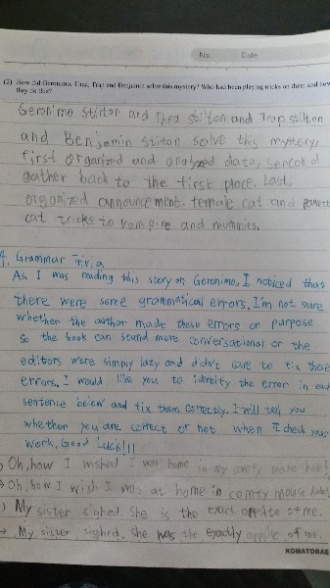 No. Date
(2) How did Geronimo, Thea, Trap and Benjamin solve this mystery? Who had been playing tricks on them and how did they do this?
Geronimo Stilton and Thea stilton and Trap stilton
and Benjamin stilton solve this mystery
first organized and analyzed data, second
gather back to the first place. Last,
organized announcement. female cat and
cat tricks to vampire and mummies.
4. Grammar Trivia
As I was reading this story on Geronimo, I noticed that
there were some grammatical errors. I'm not sure
whether the author made these errors on purpose
so the book can sound more conversational or the
editors were simply lazy and didn't care to fix these
errors. I would like you to identify the error in each
sentence below and fix them correctly. I will tell you
whether you are correct or not when I check your
work. Good Luck!!!
) Oh, how I wished I was home in my comfy mouse hole!
→ Oh, how I wish I was at home in comfy mouse hole!
) My sister sighed. She is the exact opposite of me.
→ My sister sighed. She was the exactly opposite of me.
KOMATOBAS